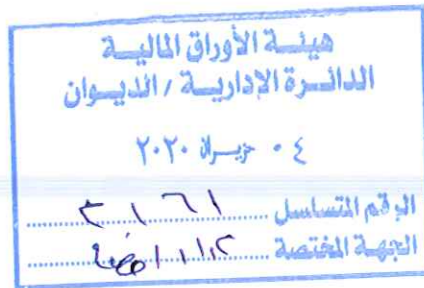 هيئة الأوراق المالية
الدائرة الإدارية / الديوان
٠٤ حزيران ٢٠٢٠
الرقم المتسلسل ٣١٦١
الجهة المختصة